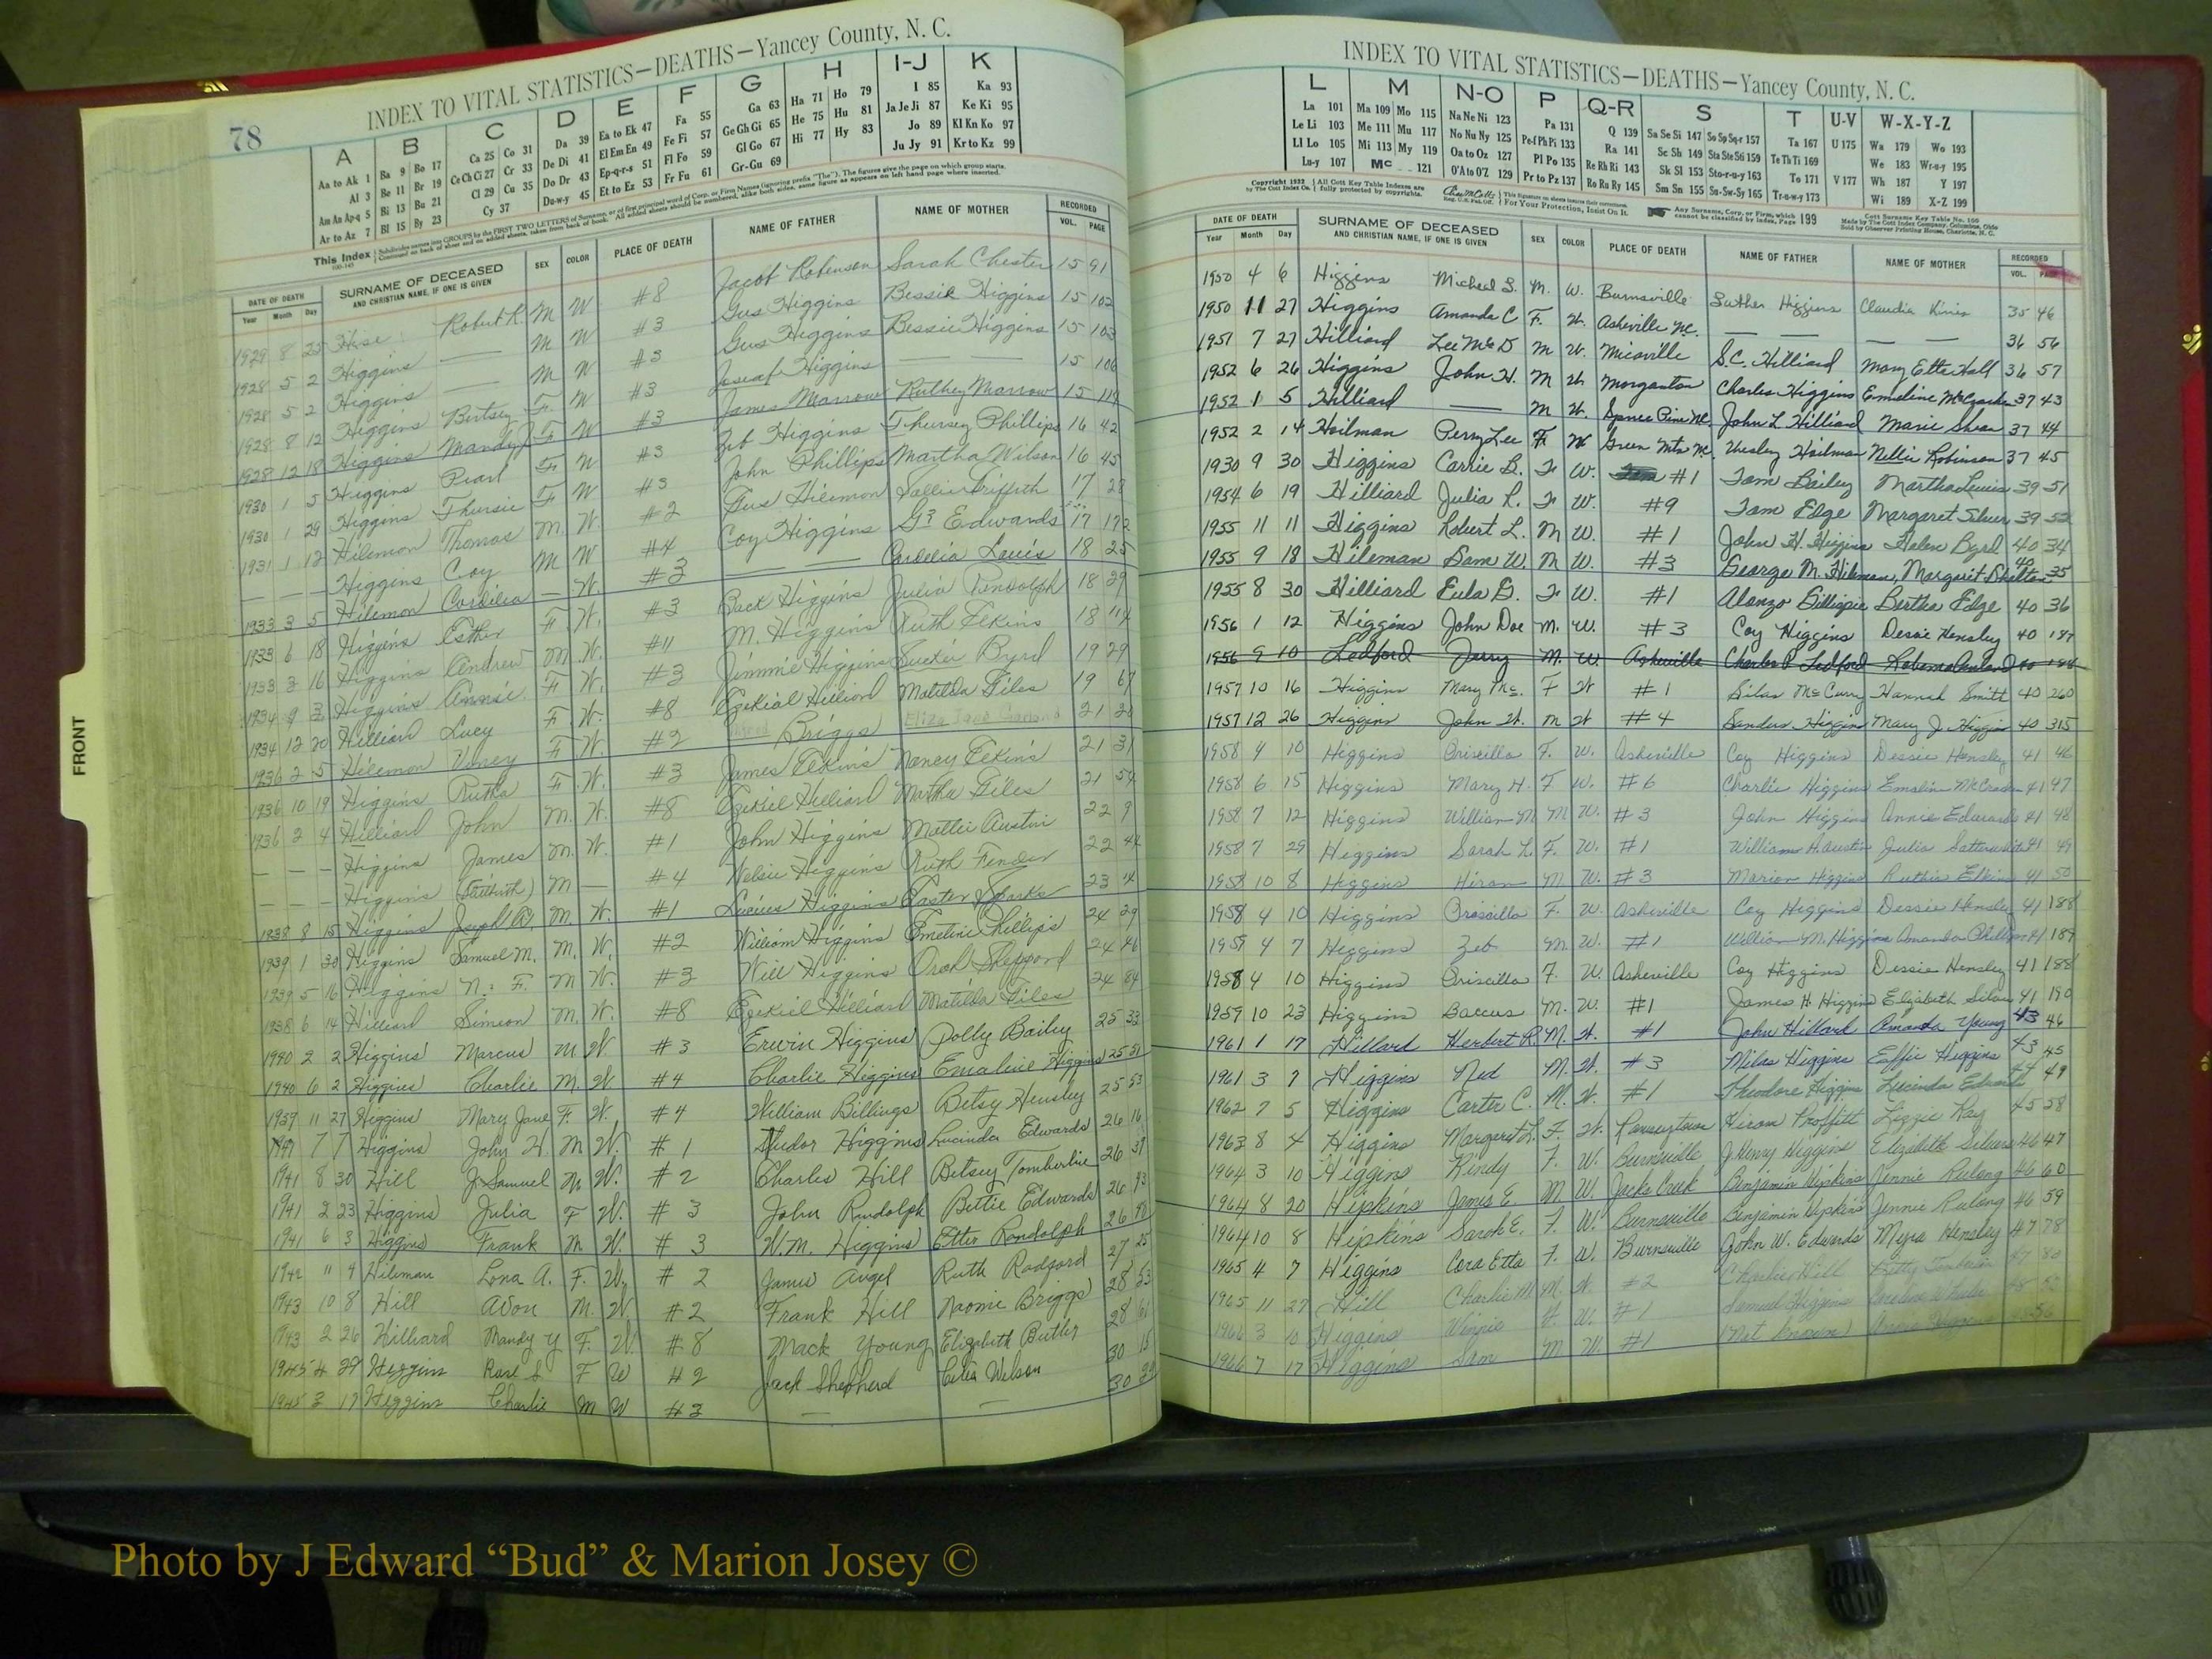 78
INDEX TO VITAL STATISTICS—DEATHS—Yancey County, N. C.
A B C D E F G H I-J K
Aa to Ak 1 Ba 9 Bo 17 Ca 25 Co 31 Da 39 Ea to Ek 47 Fa 55 Ga 63 Ha 71 Ho 79 I 85 Ka 93
Al 3 Be 11 Br 19 Ce Ch Ci 27 Cr 33 De Di 41 El Em En 49 Fe Fi 57 Ge Gh Gi 65 He 75 Hu 81 Ja Je Ji 87 Ke Ki 95
Am An Ap-q 5 Bi 13 Bu 21 Cl 29 Cu 35 Do Dr 43 Ep-q-r-s 51 Fl Fo 59 Gl Go 67 Hi 77 Hy 83 Jo 89 Kl Kn Ko 97
Ar to Az 7 Bl 15 By 23 Cy 37 Du-w-y 45 Et to Ez 53 Fr Fu 61 Gr-Gu 69 Ju Jy 91 Kr to Kz 99
This Index
DATE OF DEATH SURNAME OF DECEASED SEX COLOR PLACE OF DEATH NAME OF FATHER NAME OF MOTHER RECORDED
Year Month Day AND CHRISTIAN NAME, IF ONE IS GIVEN VOL. PAGE
1929 8 25 Hise Robert R. M W #8 Jacob Robinson Sarah Chester 15 91
1928 5 2 Higgins — M W #3 Gus Higgins Bessie Higgins 15 102
1928 5 2 Higgins — M W #3 Gus Higgins Bessie Higgins 15 103
1928 8 12 Higgins Betsey F W #3 Higgins — 15 106
1928 12 18 Higgins Mandy J F W #3 James Marrow Ruthey Marrow 15 114
1930 1 5 Higgins Pearl F W #3 Zeb Higgins Thursey Phillips 16 42
1930 1 29 Higgins Thursie F W #3 John Phillips Martha Wilson 16 45
1931 1 12 Hilemon Thomas M. W. #2 Gus Hilemon Sallie Griffith 17 28
— — — Higgins Coy M W #4 Coy Higgins Edwards 17 172
1933 3 5 Hilemon Cordelia — W. #3 — — Cordelia Lewis 18 25
1933 6 18 Higgins Esther F. W. #3 Higgins Julia Randolph 18 39
1933 3 16 Higgins Andrew M. W. #11 M. Higgins Ruth Elkins 18 114
1934 9 3 Higgins Annie F. W. #3 Jimmie Higgins Byrd 19 29
1934 12 20 Hilliard Lucy F. W. #8 Ezekial Hilliard Matilda Giles 19 67
1936 2 5 Hilemon F. W. #2 Briggs 21
1936 10 19 Higgins Rutha F. W. #3 James Elkins Nancy Elkins 21 31
1936 2 4 Hilliard John M. W. #8 Ezekiel Hilliard Martha Giles 21 54
— — — Higgins James M. W. #1 John Higgins Mattie Austin 22 9
— — — Higgins M — #4 Higgins Ruth Fender 22 44
1938 8 15 Higgins M. W. #1 Higgins Sparks 23 4
1939 1 30 Higgins Samuel M. M. W. #2 William Higgins Emeline Phillips 24 29
1939 5 16 Higgins N. F. M W. #3 Will Higgins Orah Sheppard 24 46
1938 6 14 Hilliard Simeon M. W. #8 Ezekiel Hilliard Matilda Giles 24 84
1940 2 2 Higgins Marcus M. W. #3 Erwin Higgins Polly Bailey 25 33
1940 6 2 Higgins Charlie M. W #4 Charlie Higgins Emaline Higgins 25 51
1939 11 27 Higgins Mary Jane F. W. #4 William Billings Betsy Hensley 25 53
1941 7 7 Higgins John H. M W. #1 Higgins Lucinda Edwards 26 16
1941 8 30 Hill J. Samuel M. W. #2 Charles Hill Betsey Tomberlin 26 39
1941 2 23 Higgins Julia F W. #3 John Randolph Bettie Edwards 26 43
1941 6 3 Higgins Frank M. W. #3 W.M. Higgins Etter Randolph 26
1942 11 9 Hileman Lona A. F. W. #2 James Angel Ruth Radford 27 25
1943 10 8 Hill Avon M. W. #2 Frank Hill Naomi Briggs 28 53
1943 2 26 Hilliard Mandy Y F. W. #8 Mack Young Elizabeth Butler 28 61
1945 4 29 Higgins Rose L F W #2 Jack Shepherd Celia Wilson 30 15
1945 3 17 Higgins Charlie M W #3 — — 30
FRONT
INDEX TO VITAL STATISTICS—DEATHS—Yancey County, N. C.
L M N-O P Q-R S T U-V W-X-Y-Z
La 101 Ma 109 Mo 115 Na Ne Ni 123 Pa 131 Q 139 Sa Se Si 147 So Sp Sq-r 157 Ta 167 U 175 Wa 179 Wo 193
Le Li 103 Me 111 Mu 117 No Nu Ny 125 Pe-f Ph Pi 133 Ra 141 Sc Sh 149 Sta Ste Sti 159 Te Th Ti 169 We 183 Wr-u-y 195
Ll Lo 105 Mi 113 My 119 Oa to Oz 127 Pl Po 135 Re Rh Ri 143 Sk Sl 153 Sto-r-u-y 163 To 171 V 177 Wh 187 Y 197
Lu-y 107 Mc 121 O'A to O'Z 129 Pr to Pz 137 Ro Ru Ry 145 Sm Sn 155 Su-Sw-Sy 165 Tr-u-w-y 173 Wi 189 X-Z 199
DATE OF DEATH SURNAME OF DECEASED SEX COLOR PLACE OF DEATH NAME OF FATHER NAME OF MOTHER RECORDED
Year Month Day AND CHRISTIAN NAME, IF ONE IS GIVEN VOL. PAGE
1950 4 6 Higgins Micheal S. M. W. Burnsville Luther Higgins Claudia 35 46
1950 11 27 Higgins Amanda C F. W. Asheville N.C. — — 36 56
1951 7 27 Hilliard Lee McD M W. Micaville S.C. Hilliard Mary Etta Hall 36 57
1952 6 26 Higgins John H. M W. Morganton Charles Higgins Emeline McCracken 37 43
1952 1 5 Hilliard — M W. Spruce Pine N.C. John L Hilliard Marie Shean 37 44
1952 2 14 Hoilman Perry Lee F W Green Mtn N.C. Wesley Hoilman Nellie Robinson 37 45
1930 9 30 Higgins Carrie B. F W. #1 Tam Bailey Martha Lewis 39 51
1954 6 19 Hilliard Julia R. F W. #9 Tam Edge Margaret Silver 39 52
1955 11 11 Higgins Robert L. M W. #1 John H. Higgins Helen Byrd 40 34
1955 9 18 Hileman Sam W. M W. #3 George M. Hileman, Margaret Shelton 40 35
1955 8 30 Hilliard Eula G. F W. #1 Alonzo Gillispie Bertha Edge 40 36
1956 1 12 Higgins John Doe M. W. #3 Coy Higgins Dessie Hensley 40 187
1956 9 10 Ledford Jerry M. W. Asheville Charles P Ledford 40 188
1957 10 16 Higgins Mary Mc. F W #1 Silas McCurry Hannah Smitt 40 260
1957 12 26 Higgins John W. M W #4 Sandus Higgins Mary J. Higgins 40 315
1958 4 10 Higgins Priscilla F. W. Asheville Coy Higgins Dessie Hensley 41 46
1958 6 15 Higgins Mary H. F W. #6 Charlie Higgins Emaline McCracken 41 47
1958 7 12 Higgins William M M W. #3 John Higgins Annie Edwards 41 48
1958 7 29 Higgins Sarah L. F. W. #1 William H. Austin Julia 41 49
1958 10 8 Higgins Hiram M W. #3 Marion Higgins Ruthie Elkins 41 50
1958 4 10 Higgins Priscilla F. W. Asheville Coy Higgins Dessie Hensley 41 188
1959 4 7 Higgins Zeb M. W. #1 William M. Higgins Amanda Phillips 41 189
1958 4 10 Higgins Priscilla F. W. Asheville Coy Higgins Dessie Hensley 41 188
1959 10 23 Higgins Baccus M. W. #1 James H Higgins Elizabeth Silver 41 190
1961 1 17 Hillard Herbert R. M. W. #1 John Hillard Amanda Young 43 46
1961 3 7 Higgins Ned M. W. #3 Milas Higgins Effie Higgins 43 45
1962 7 5 Higgins Carter C. M. W. #1 Theodore Higgins Lucinda Edwards 49
1963 8 4 Higgins Margaret L. F. W. Ramseytown Hiram Proffitt Lizzie Ray 45 58
1964 3 10 Higgins Kindy F. W. Burnsville J. Henry Higgins Elizabeth Silvers 46 47
1964 8 20 Hipkins James E. M. W. Jacks Creek Benjamin Hipkins Jennie Rulong 46 60
1964 10 8 Hipkins Sarah E. F. W. Burnsville Benjamin Hipkins Jennie Rulong 46 59
1965 4 7 Higgins Cora Etta F. W. Burnsville John W. Edwards Myra Hensley 47 78
1965 11 27 Hill Charlie M M. W. #2 Charlie Hill 47 80
1966 3 10 Higgins Winnie F. W. #1 Samuel Higgins
1966 7 17 Higgins Sam M W. #1 (Not known) Higgins 56
Photo by J Edward “Bud” & Marion Josey ©